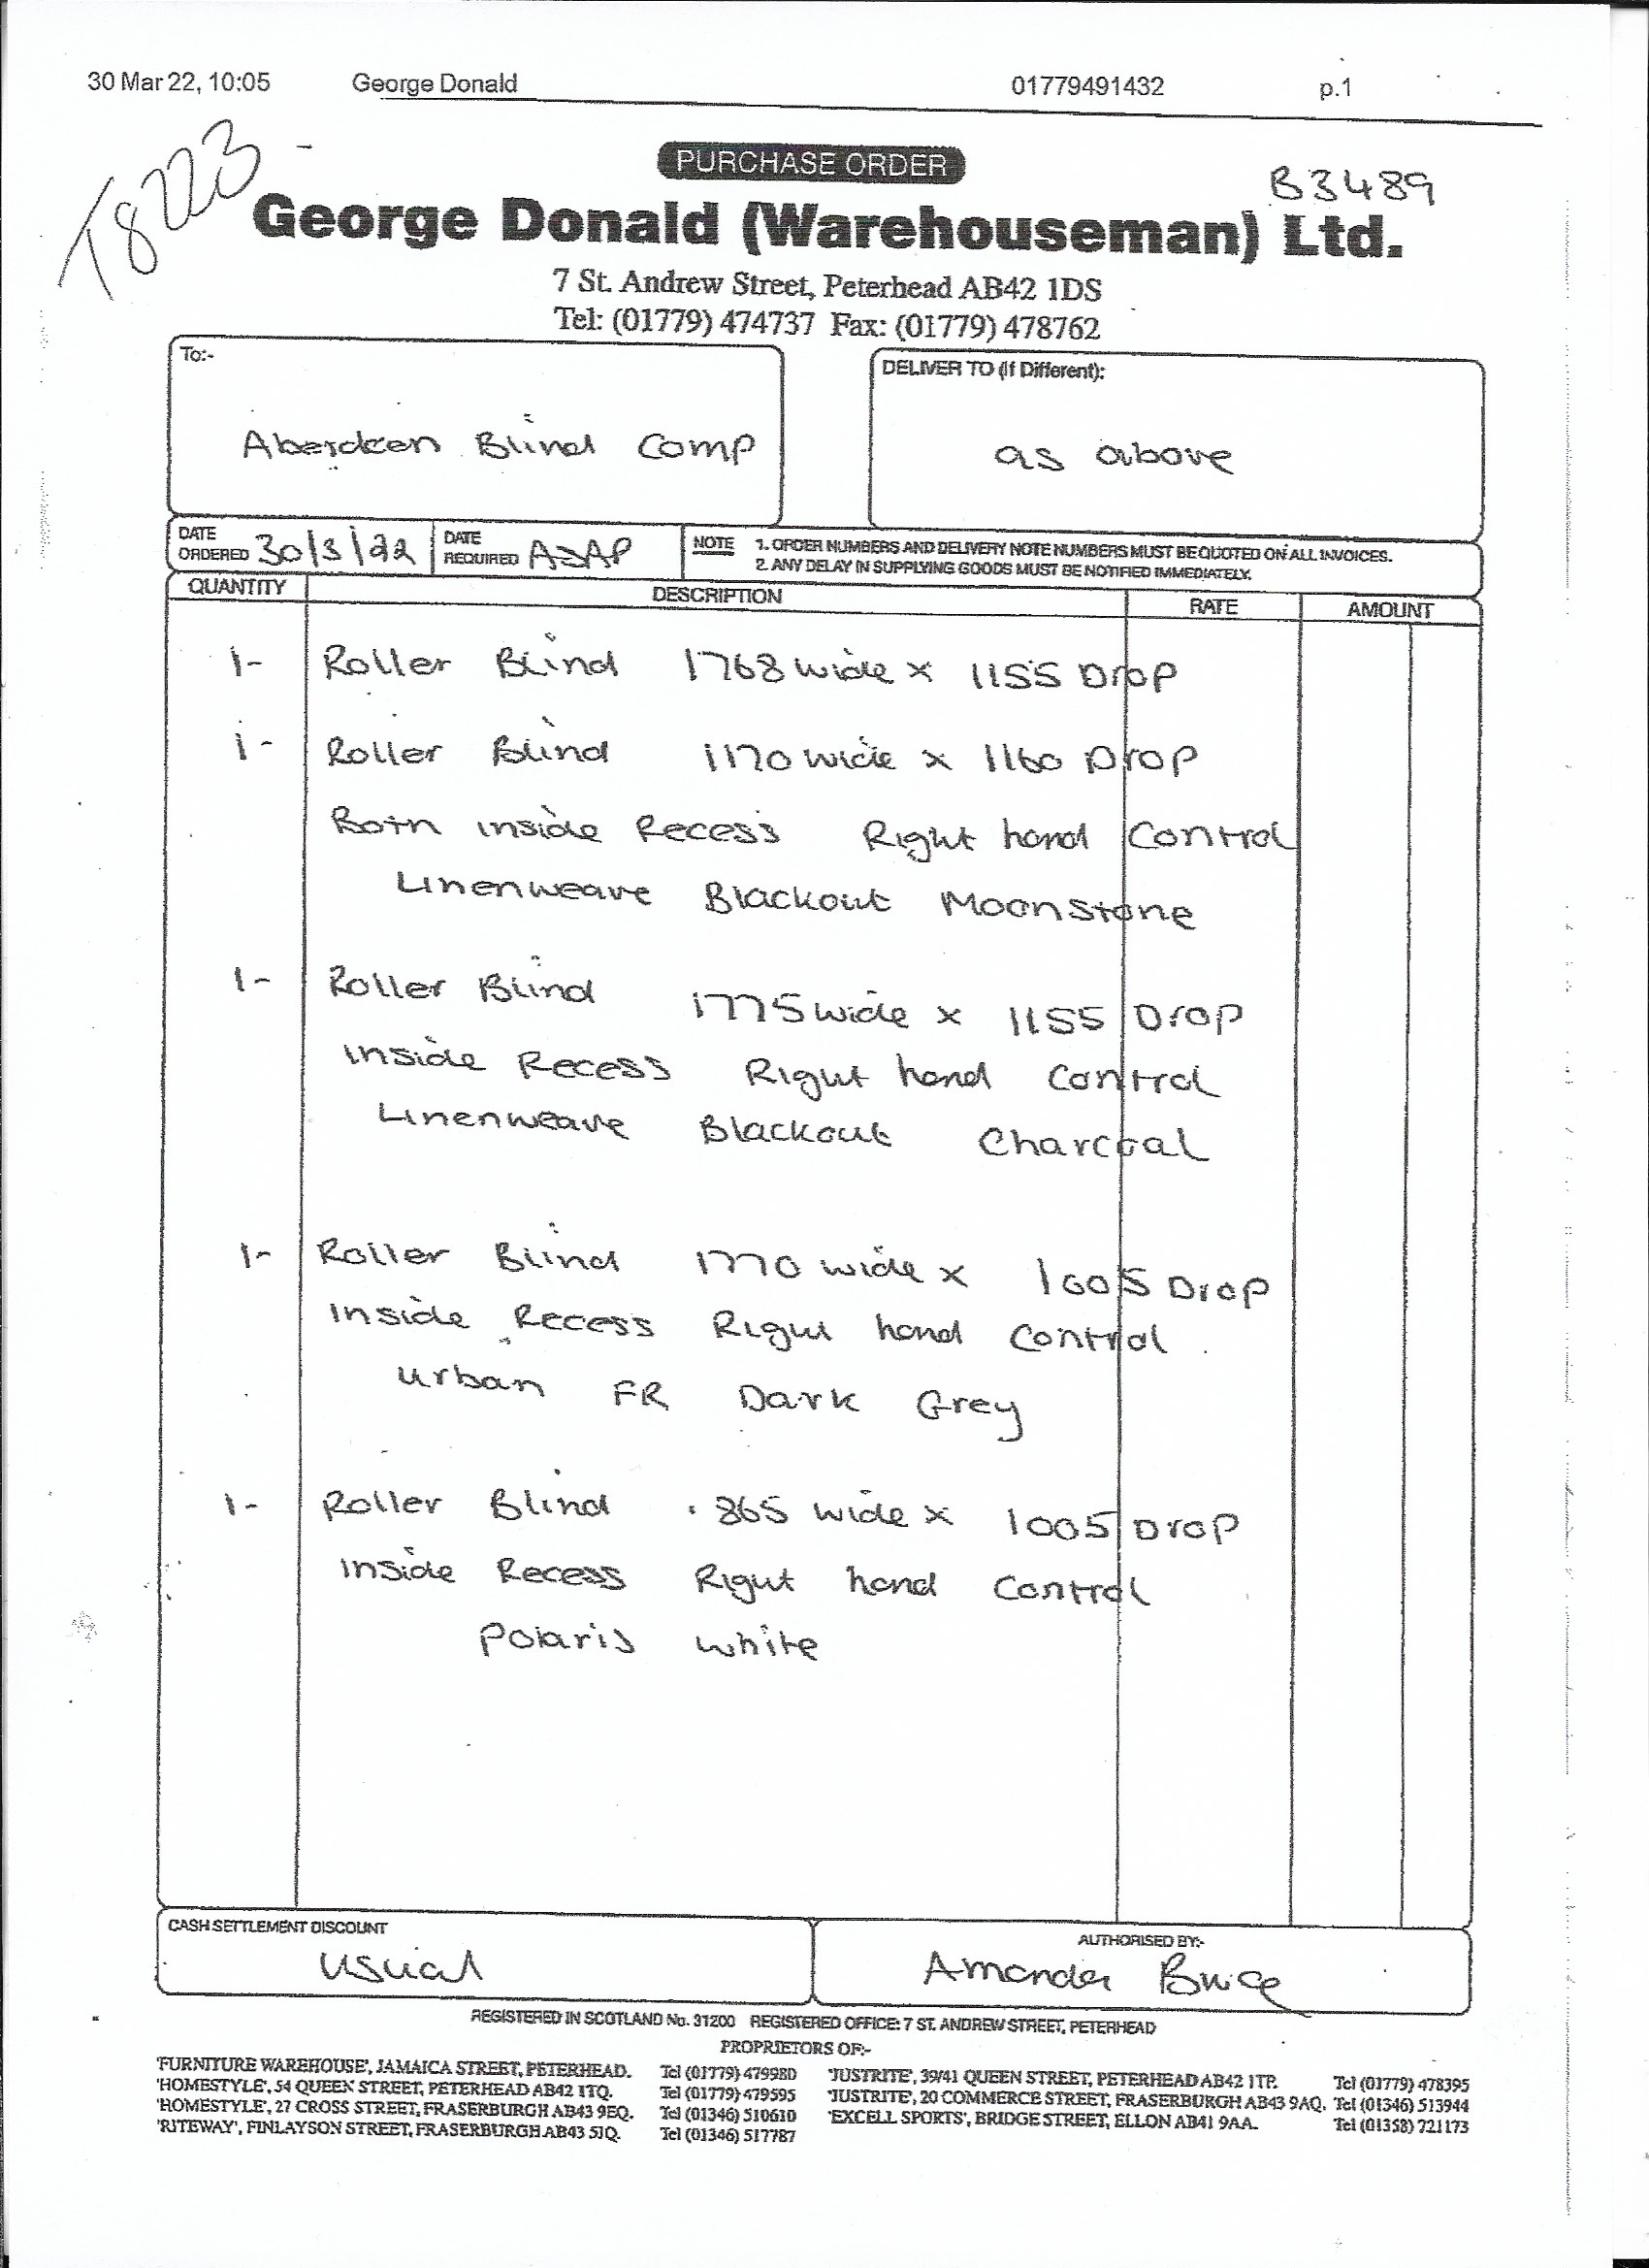 30 Mar 22, 10:05 George Donald 01779491432 p.1
T8223
PURCHASE ORDER
B3489
George Donald (Warehouseman) Ltd.
7 St. Andrew Street, Peterhead AB42 1DS
Tel: (01779) 474737 Fax: (01779) 478762
To:-
DELIVER TO (If Different):
Aberdeen Blind Comp
as above
DATE ORDERED 30/3/22 DATE REQUIRED ASAP
NOTE 1. ORDER NUMBERS AND DELIVERY NOTE NUMBERS MUST BE QUOTED ON ALL INVOICES.
2. ANY DELAY IN SUPPLYING GOODS MUST BE NOTIFIED IMMEDIATELY.
QUANTITY DESCRIPTION RATE AMOUNT
1- Roller Blind 1768 wide x 1155 Drop
1- Roller Blind 1170 wide x 1160 Drop
Both inside Recess Right hand Control
Linenweave Blackout Moonstone
1- Roller Blind 1775 wide x 1155 Drop
Inside Recess Right hand Control
Linenweave Blackout Charcoal
1- Roller Blind 1770 wide x 1005 Drop
Inside Recess Right hand Control
Urban FR Dark Grey
1- Roller Blind 865 wide x 1005 Drop
Inside Recess Right hand Control
Polaris White
CASH SETTLEMENT DISCOUNT
Usual
AUTHORISED BY:-
Amanda Bruce
REGISTERED IN SCOTLAND No. 31200 REGISTERED OFFICE: 7 ST. ANDREW STREET, PETERHEAD
PROPRIETORS OF:-
'FURNITURE WAREHOUSE', JAMAICA STREET, PETERHEAD. Tel (01779) 479980 'JUSTRITE', 39/41 QUEEN STREET, PETERHEAD AB42 1TP. Tel (01779) 478395
'HOMESTYLE', 54 QUEEN STREET, PETERHEAD AB42 1TQ. Tel (01779) 479595 'JUSTRITE', 20 COMMERCE STREET, FRASERBURGH AB43 9AQ. Tel (01346) 513944
'HOMESTYLE', 27 CROSS STREET, FRASERBURGH AB43 9EQ. Tel (01346) 510610 'EXCELL SPORTS', BRIDGE STREET, ELLON AB41 9AA. Tel (01358) 721173
'RITEWAY', FINLAYSON STREET, FRASERBURGH AB43 5JQ. Tel (01346) 517787